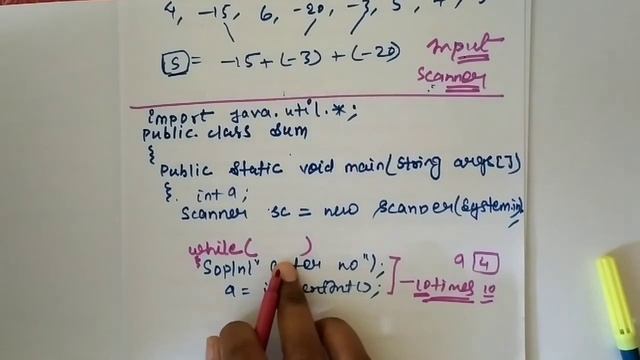 4, -15, 6, -20, -3, 5,
S = -15 + (-3) + (-20)
Input
Scanner
import java.util.*;
public class Sum
{
public static void main(String args[])
{ int a;
Scanner sc = new Scanner(System.in)
while( )
{ Sopln(" enter no");
a = 
a 4
-10 times 10